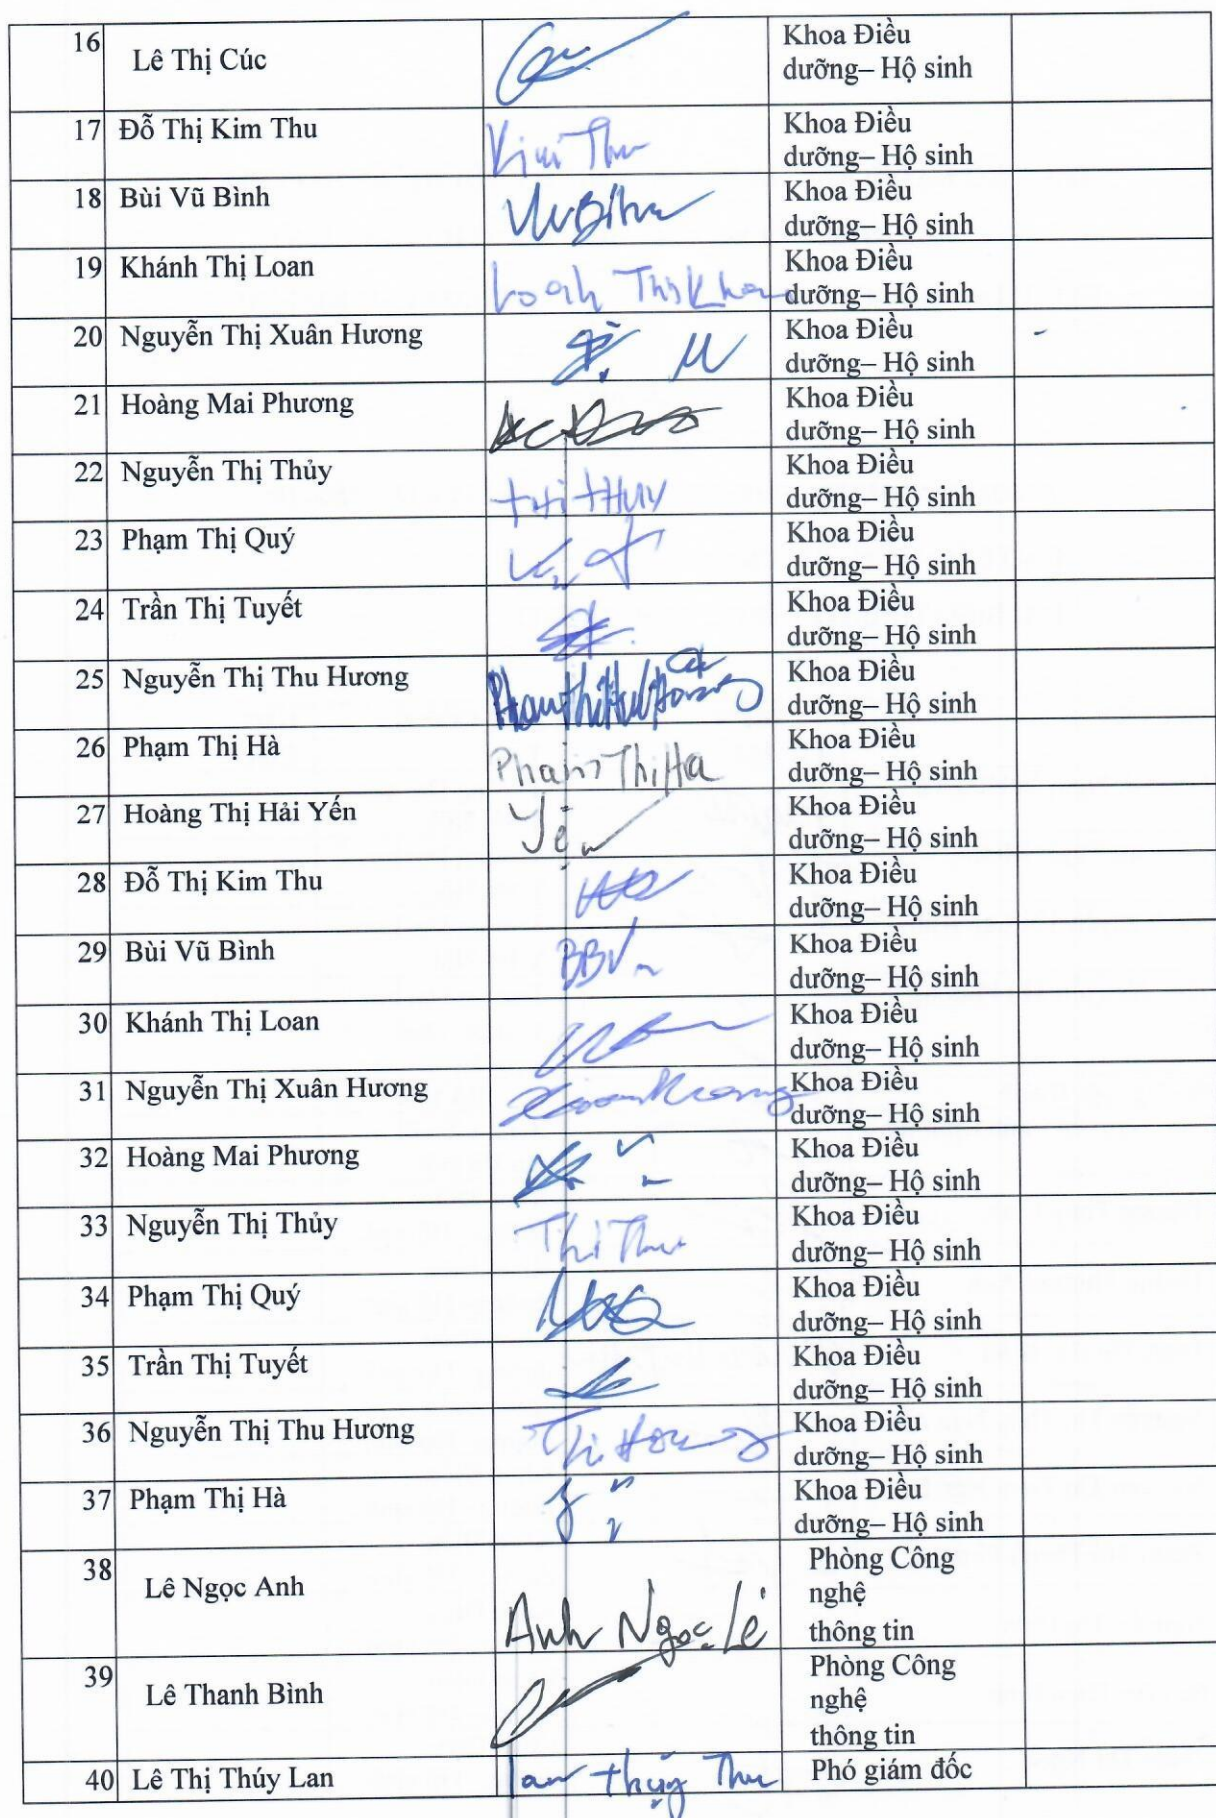 16 Lê Thị Cúc Khoa Điều
dưỡng– Hộ sinh
17 Đỗ Thị Kim Thu Kim Thu Khoa Điều
dưỡng– Hộ sinh
18 Bùi Vũ Bình Khoa Điều
dưỡng– Hộ sinh
19 Khánh Thị Loan Khoa Điều
dưỡng– Hộ sinh
20 Nguyễn Thị Xuân Hương Khoa Điều
dưỡng– Hộ sinh
21 Hoàng Mai Phương Khoa Điều
dưỡng– Hộ sinh
22 Nguyễn Thị Thủy Khoa Điều
dưỡng– Hộ sinh
23 Phạm Thị Quý Khoa Điều
dưỡng– Hộ sinh
24 Trần Thị Tuyết Khoa Điều
dưỡng– Hộ sinh
25 Nguyễn Thị Thu Hương Khoa Điều
dưỡng– Hộ sinh
26 Phạm Thị Hà Phạm Thị Ha Khoa Điều
dưỡng– Hộ sinh
27 Hoàng Thị Hải Yến Khoa Điều
dưỡng– Hộ sinh
28 Đỗ Thị Kim Thu Khoa Điều
dưỡng– Hộ sinh
29 Bùi Vũ Bình Khoa Điều
dưỡng– Hộ sinh
30 Khánh Thị Loan Khoa Điều
dưỡng– Hộ sinh
31 Nguyễn Thị Xuân Hương Khoa Điều
dưỡng– Hộ sinh
32 Hoàng Mai Phương Khoa Điều
dưỡng– Hộ sinh
33 Nguyễn Thị Thủy Khoa Điều
dưỡng– Hộ sinh
34 Phạm Thị Quý Khoa Điều
dưỡng– Hộ sinh
35 Trần Thị Tuyết Khoa Điều
dưỡng– Hộ sinh
36 Nguyễn Thị Thu Hương Khoa Điều
dưỡng– Hộ sinh
37 Phạm Thị Hà Khoa Điều
dưỡng– Hộ sinh
38 Lê Ngọc Anh Anh Ngọc Lê Phòng Công
nghệ
thông tin
39 Lê Thanh Bình Phòng Công
nghệ
thông tin
40 Lê Thị Thúy Lan Phó giám đốc